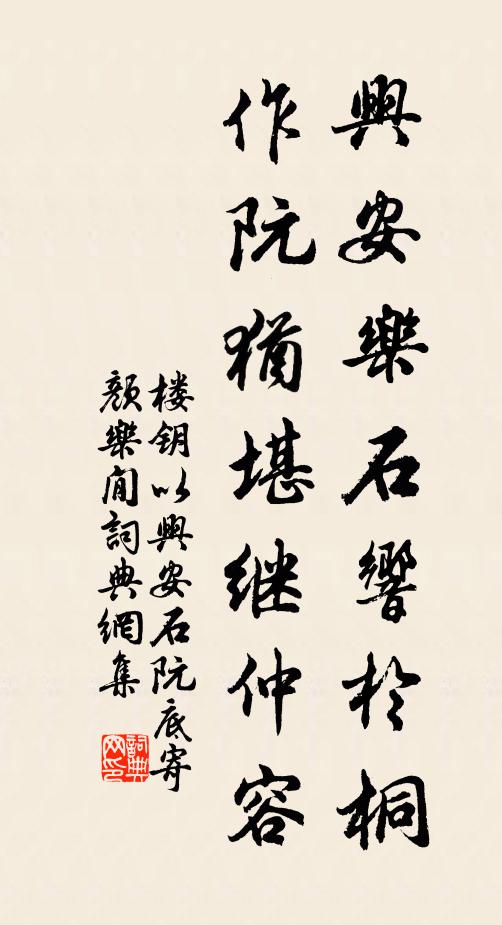 興安樂石響於桐
作阮猶堪继仲容
楼钥以興安石阮底寄
顏樂閒詞典網集
詞典網印